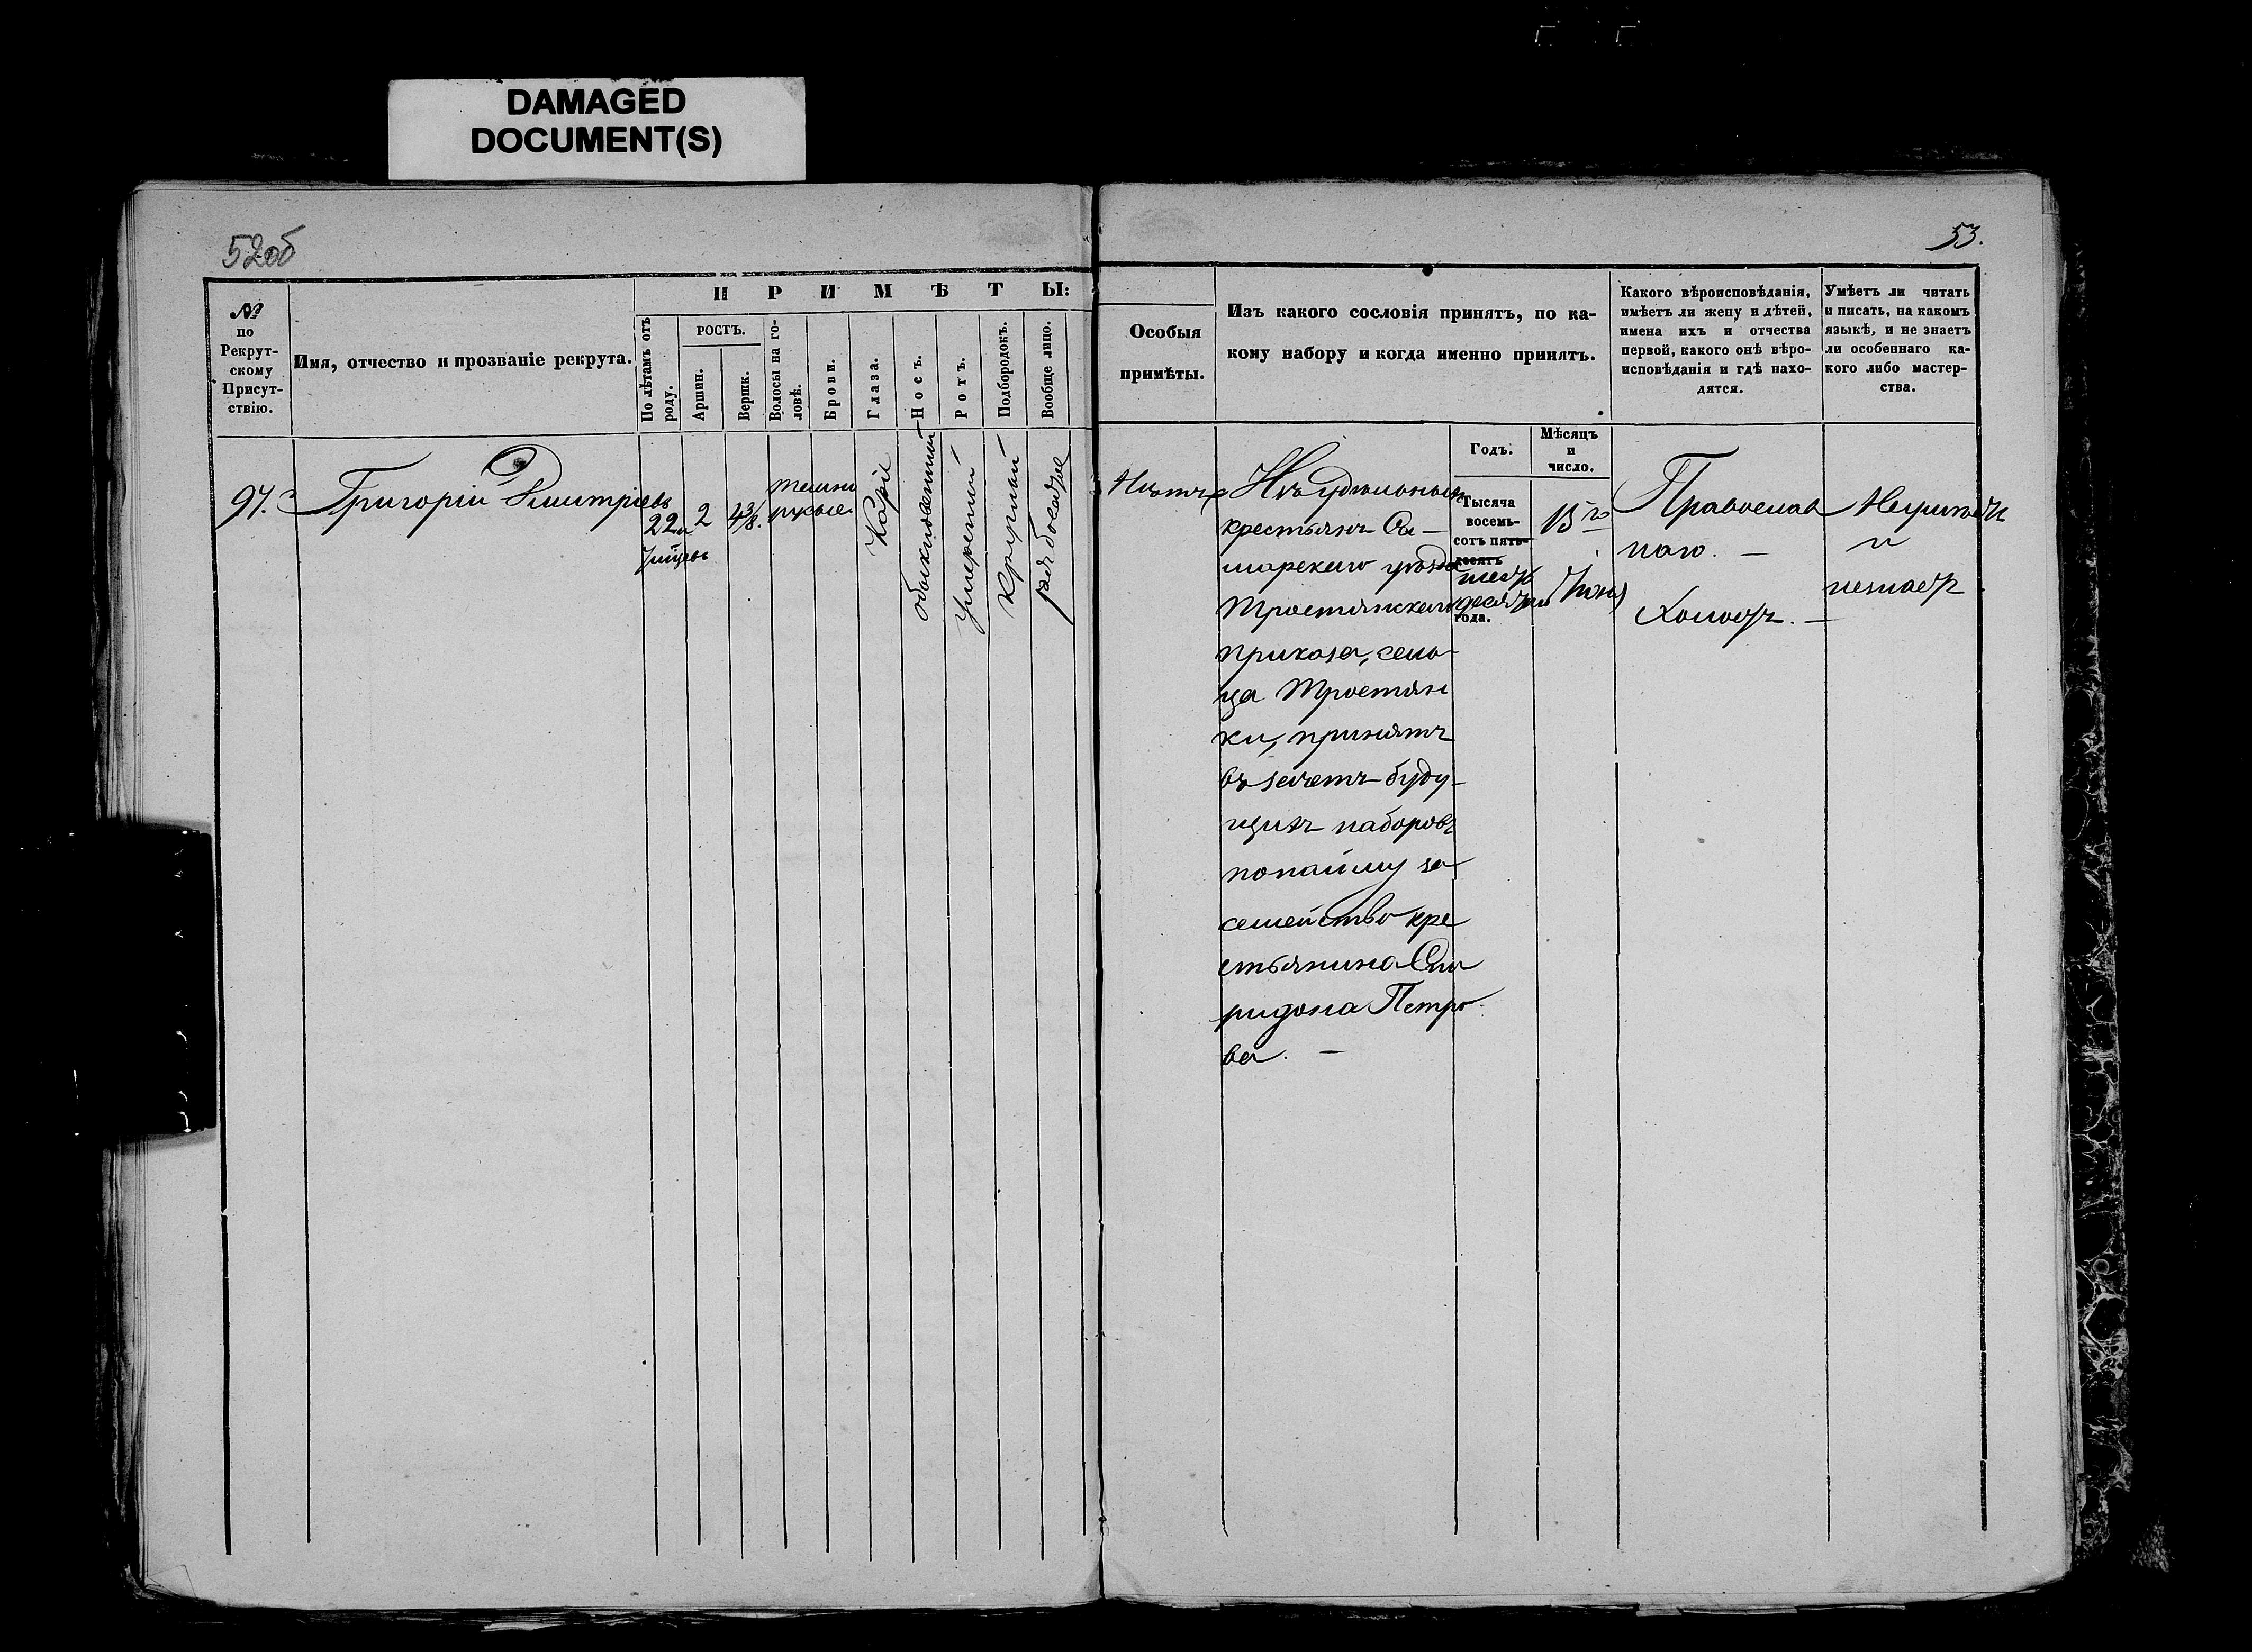 DAMAGED
DOCUMENT(S)
52об
53.
№
по
Рекрут-
скому
Присут-
ствію.
Имя, отчество и прозваніе рекрута.
ПРИМѢТЫ:
По лѣтамъ отъ
роду.
РОСТЪ.
Аршин.
Вершк.
Волосы на го-
ловѣ.
Брови.
Глаза.
Носъ.
Ротъ.
Подбородокъ.
Вообще лицо.
Особыя
примѣты.
Изъ какого сословія принятъ, по ка-
кому набору и когда именно принятъ.
Какого вѣроисповѣданія,
имѣетъ ли жену и дѣтей,
имена ихъ и отчества
первой, какого онѣ вѣро-
исповѣданія и гдѣ нахо-
дятся.
Умѣетъ ли читать
и писать, на какомъ
языкѣ, и не знаетъ
ли особеннаго ка-
кого либо мастер-
ства.
97.
Григорій Дмитріевъ
22
2
4 3/8.
темно
русые
Каріе
обыкновенный
умеренный
круглый
Нѣтъ
Изъ удѣльныхъ
крестьянъ Са-
марскаго уѣзда
Тростянскаго
приказа, сель-
ца Тростян
ки, принятъ
въ зачетъ буду-
щихъ наборовъ
по найму за
семейство кре
стьянина Спи
ридона Петро
ва. —
Годъ.
Тысяча
восемь-
сотъ пять-
десятъ
шесть
десятый
года.
Мѣсяцъ
и
число.
13го
Православ
наго. —
Холостъ. —
Неумѣетъ
и
незнаетъ